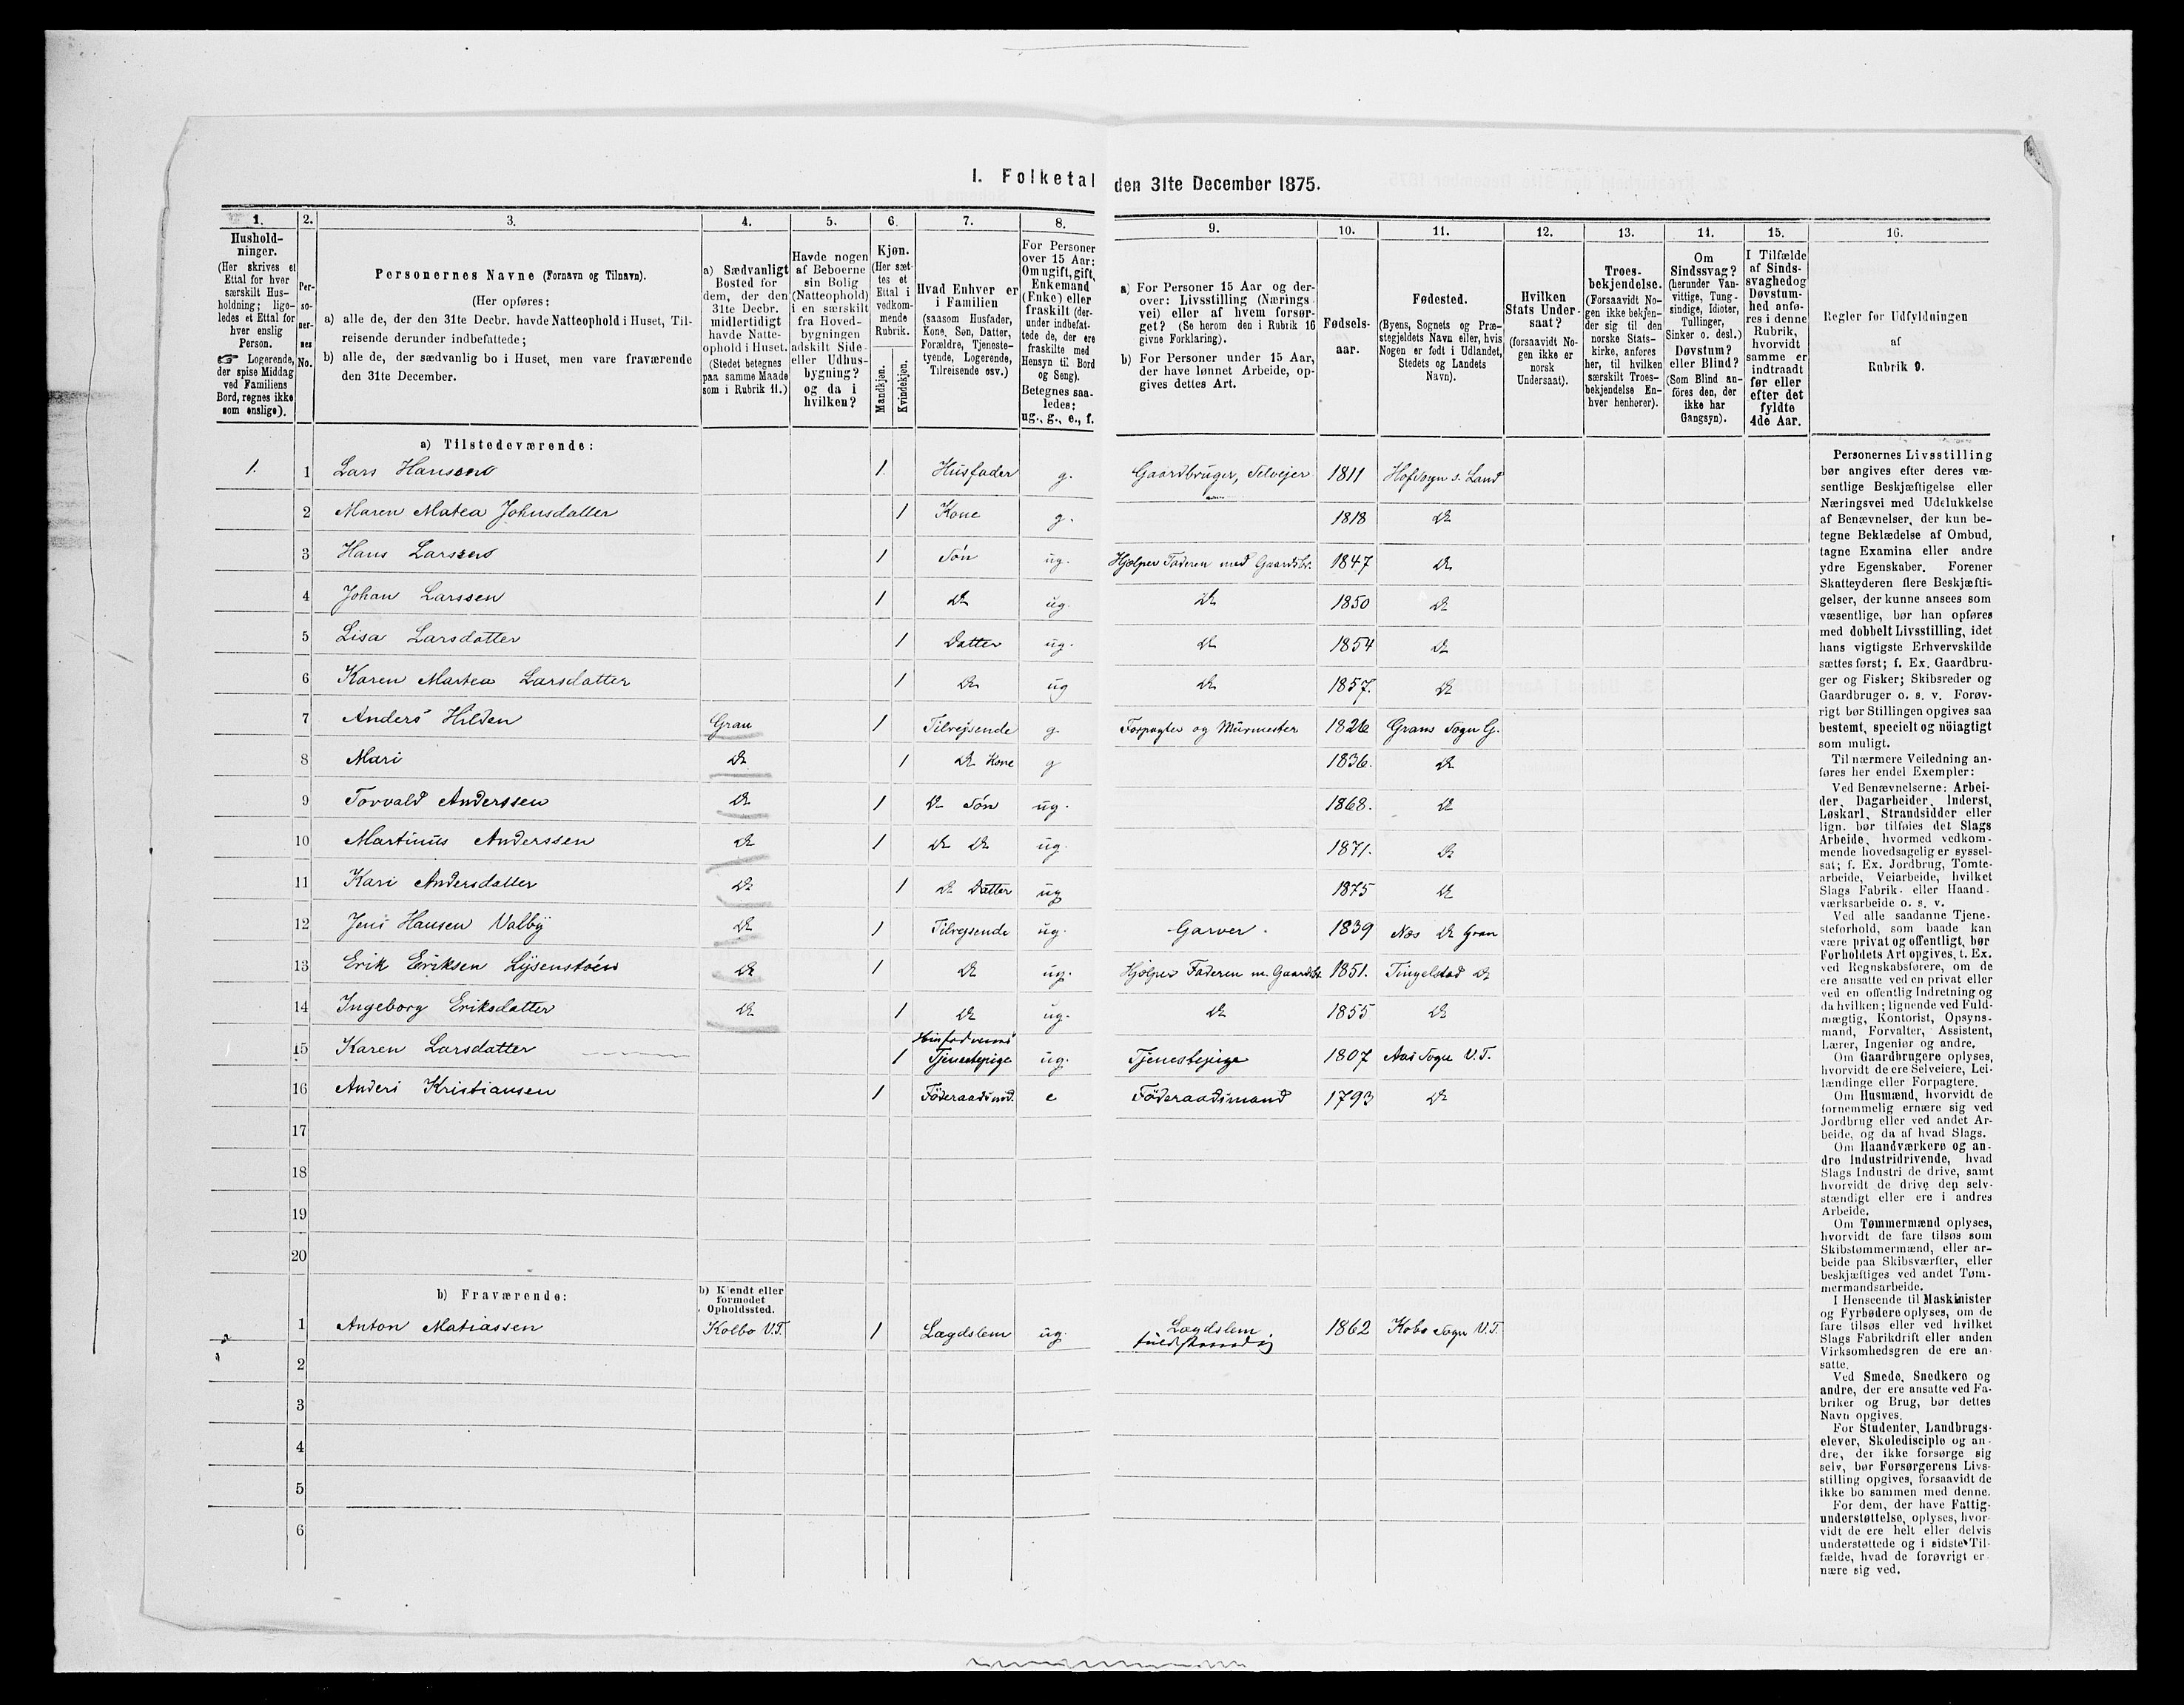 I. Folketal den 31te December 1875.
1. 2. 3. 4. 5. 6. 7. 8. 9. 10. 11. 12. 13. 14. 15. 16.
Hushold-
ninger.
(Her skrives et
Ettal for hver
særskilt Hus-
holdning; lige-
ledes et Ettal for
hver enslig
Person.
☞ Logerende,
der spise Middag
ved Familiens
Bord, regnes ikke
som enslige).
Per-
so-
ner-
nes
No.
Personernes Navne (Fornavn og Tilnavn).
(Her opføres:
a) alle de, der den 31te Decbr. havde Natteophold i Huset, Til-
reisende derunder indbefattede;
b) alle de, der sædvanlig bo i Huset, men vare fraværende
den 31te December.
a) Sædvanligt
Bosted for
dem, der den
31te Decbr.
midlertidigt
havde Natte-
ophold i Huset.
(Stedet betegnes
paa samme Maade
som i Rubrik 11.)
Havde nogen
af Beboerne
sin Bolig
(Natteophold)
i en særskilt
fra Hoved-
bygningen
adskilt Side-
eller Udhus-
bygning?
og da i
hvilken?
Kjøn.
(Her sæt-
tes et
Ettal i
vedkom-
mende
Rubrik.
Mandkjøn.
Kvindekjøn.
Hvad Enhver er
i Familien
(saasom Husfader,
Kone, Søn, Datter,
Forældre, Tjeneste-
tyende, Logerende,
Tilreisende osv.)
For Personer
over 15 Aar:
Om ugift, gift,
Enkemand
(Enke) eller
fraskilt (der-
under indbefat-
tede de, der ere
fraskilte med
Hensyn til Bord
og Seng).
Betegnes saa-
ledes:
ug., g., e., f.
a) For Personer 15 Aar og der-
over: Livsstilling (Nærings
vei) eller af hvem forsør-
get? (Se herom den i Rubrik 16
givne Forklaring).
b) For Personer under 15 Aar,
der have lønnet Arbeide, op-
gives dettes Art.
Fødsels-
aar.
Fødested.
(Byens, Sognets og Præ-
stegjeldets Navn eller, hvis
Nogen er født i Udlandet,
Stedets og Landets
Navn).
Hvilken
Stats Under-
saat?
(forsaavidt No-
gen ikke er
norsk
Undersaat).
Troes-
bekjendelse.
(Forsaavidt No-
gen ikke bekjen-
der sig til den
norske Stats-
kirke, anføres
her, til hvilken
særskilt Troes-
bekjendelse En-
hver henhører).
Om
Sindssvag?
(herunder Van-
vittige, Tung-
sindige, Idioter,
Tullinger,
Sinker o. desl.)
Døvstum?
eller Blind?
(Som Blind an-
føres den, der
ikke har
Gangsyn).
I Tilfælde
af Sinds-
svaghed og
Døvstum-
hed anfø-
res i denne
Rubrik,
hvorvidt
samme er
indtraadt
før eller
efter det
fyldte
4de Aar.
Regler før Udfyldningen
af
Rubrik 9.
a) Tilstedeværende:
1. 1 Lars Hanssen 1. Husfader g. Gaardbruger, Selvejer 1811 Hofsogn s. Land
2 Maren Matea Johnsdatter 1 Kone g. 1818 Do
3 Hans Larssen 1 Søn ug. Hjelper Faderen med Gaardsbr. 1847 Do
4 Johan Larssen 1 Do ug. Do 1850 Do
5 Lisa Larsdatter 1 Datter ug. Do 1854 Do
6 Karen Martea Larsdatter 1 Do ug Do 1857. Do
7 Anders Hilden Gran 1 Tilrejsende g. Forpagter og Murmester 1826 Grans Sogn G.
8 Mari Do 1 Do Kone g 1836. Do
9 Torvald Anderssen Do 1 Do Søn ug. 1868. Do
10 Martinus Anderssen Do 1 Do Do ug. 1871. Do
11 Kari Andersdatter Do 1 Do Datter ug 1875 Do
12 Jens Hansen Valby Do 1 Tilrejsende ug. Garver. 1839 Næs Do Gran
13 Erik Eriksen Lysenstøen Do 1 Do ug. Hjelper Faderen m. Gaardsbr. 1851. Tingelstad Do
14 Ingeborg Eriksdatter Do 1 Do ug. Do 1855 Do
15 Karen Larsdatter 1 Husfaderens Tjenestepige ug. Tjenestepige 1807 Aas Sogn V.T.
16 Anders Kristiansen 1 Föderaadsmd. e Föderaadsmand 1793 Do
17
18
19
20
b) Fraværende:
b) Kjendt eller
formodet
Opholdssted.
1 Anton Matiassen Kolbo V.T. 1 Lægdslem ug. Lægdslem 1862 Kobo Sogn V.T.
fuldstændig
2
3
4
5
6
Personernes Livsstilling
bør angives efter deres væ-
sentlige Beskjæftigelse eller
Næringsvei med Udelukkelse
af Benævnelser, der kun be-
tegne Beklædelse af Ombud,
tagne Examina eller andre
ydre Egenskaber. Forener
Skatteyderen flere Beskjæfti-
gelser, der kunne ansees som
væsentlige, bør han opføres
med dobbelt Livsstilling, idet
hans vigtigste Erhvervskilde
sættes først; f. Ex. Gaardbru-
ger og Fisker; Skibsreder og
Gaardbruger o. s. v. Forøv-
rigt bør Stillingen opgives saa
bestemt, specielt og nöiagtigt
som muligt.
Til nærmere Veiledning an-
føres her endel Exempler:
Ved Benævnelserne: Arbei-
der, Dagarbeider, Inderst,
Løskarl, Strandsidder eller
lign. bør tilføies det Slags
Arbeide, hvormed vedkom-
mende hovedsagelig er syssel-
sat; f. Ex. Jordbrug, Tomte-
arbeide, Veiarbeide, hvilket
Slags Fabrik- eller Haand-
værksarbeide o. s. v.
Ved alle saadanne Tjene-
steforhold, som baade kan
være privat og offentligt, bør
Forholdets Art opgives, t. Ex.
ved Regnskabsførere, om de
ere ansatte ved en privat eller
ved en offentlig Indretning og
da hvilken; lignende ved Fuld-
mægtig, Kontorist, Opsyns-
mand, Forvalter, Assistent,
Lærer, Ingeniør og andre.
Om Gaardbrugere oplyses,
hvorvidt de ere Selveiere, Lei-
lændinge eller Forpagtere.
Om Husmænd, hvorvidt de
fornemmelig ernære sig ved
Jordbrug eller ved andet Ar-
beide, og da af hvad Slags.
Om Haandværkere og an-
dre Industridrivende, hvad
Slags Industri de drive, samt
hvorvidt de drive den selv-
stændigt eller ere i andres
Arbeide.
Om Tømmermænd oplyses,
hvorvidt de fare tilsøs som
Skibstømmermænd, eller ar-
beide paa Skibsværfter, eller
beskjæftiges ved andet Tøm-
mermandsarbeide.
I Henseende til Maskinister
og Fyrbødere oplyses, om de
fare tilsøs eller ved hvilket
Slags Fabrikdrift eller anden
Virksomhedsgren de ere an-
satte.
Ved Smede, Snedkere og
andre, der ere ansatte ved Fa-
briker og Brug, bør dettes
Navn opgives.
For Studenter, Landbrugs-
elever, Skoledisciple og an-
dre, der ikke forsørge sig
selv, bør Forsørgerens Livs-
stilling opgives, forsaavidt de
ikke bo sammen med denne.
For dem, der have Fattig-
understøttelse, oplyses, hvor-
vidt de ere helt eller delvis
understøttede og i sidste Til-
fælde, hvad de forøvrigt er-
nære sig ved.